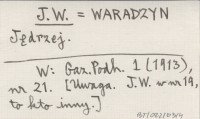 J.W. = WARADZYN
Jędrzej.
W: Gaz. Podh. 1 (1913),
nr 21. [Uwaga. J.W. w nr 19,
to kto inny.]